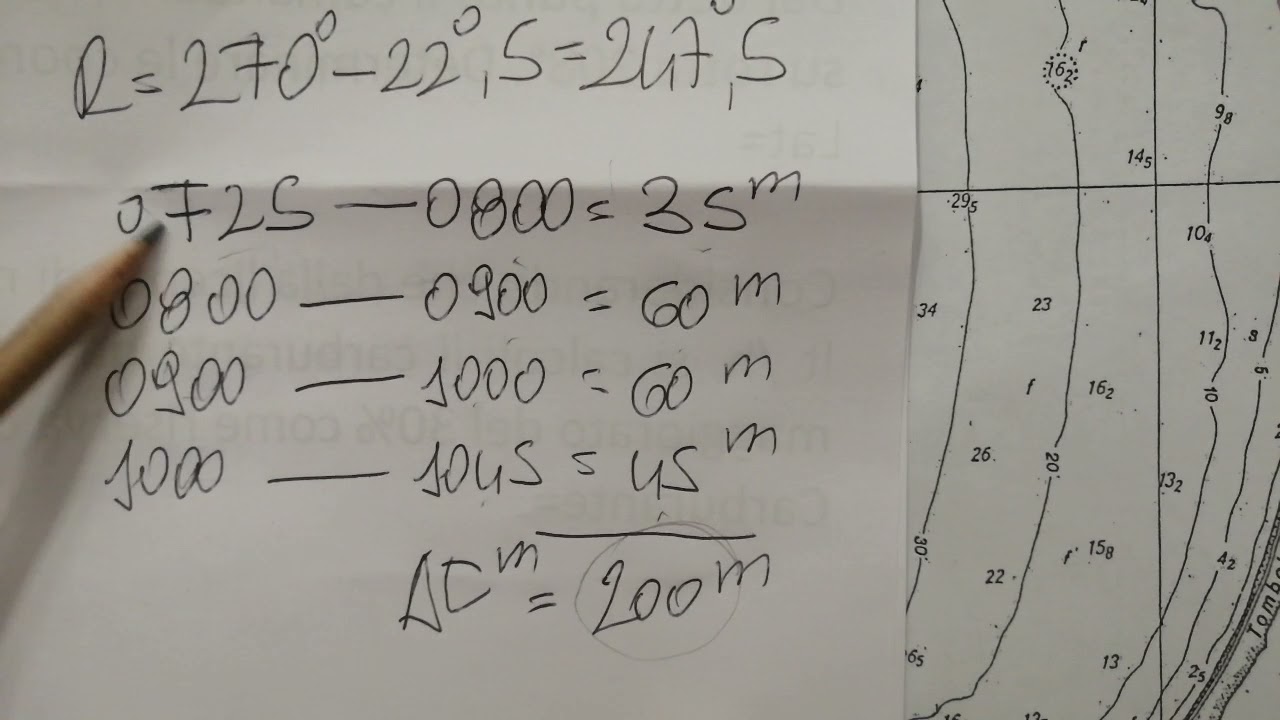 R = 270° - 22°,5 = 247°,5
0725 — 0800 = 35 m
0800 — 0900 = 60 m
0900 — 1000 = 60 m
1000 — 1045 = 45 m
Δt m = 200 m
16₂
9₈
14₅
29₅
10₄
34
23
11₂
s
5
f
16₂
10
26
20
13₂
30
f
15₈
4₂
22
6₅
13
2₅